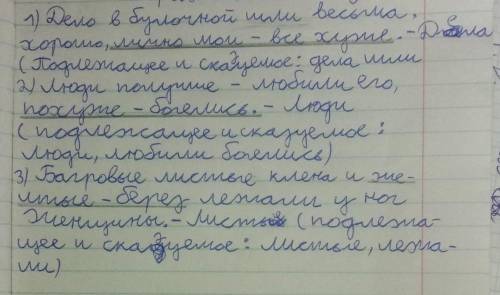 1) Дело в булочной шли весьма
хорошо, лично мои - все хуже. - Дела
(Подлежащее и сказуемое: дела шли
2) Люди получше - любили его,
похуже - боялись. - Люди
(подлежащее и сказуемое:
люди, любили боялись)
3) Багровые листья клена и же-
лтые - берез лежали у ног
Женщины. - Листья (подлежа-
щее и сказуемое: листья, лежа-
ли)